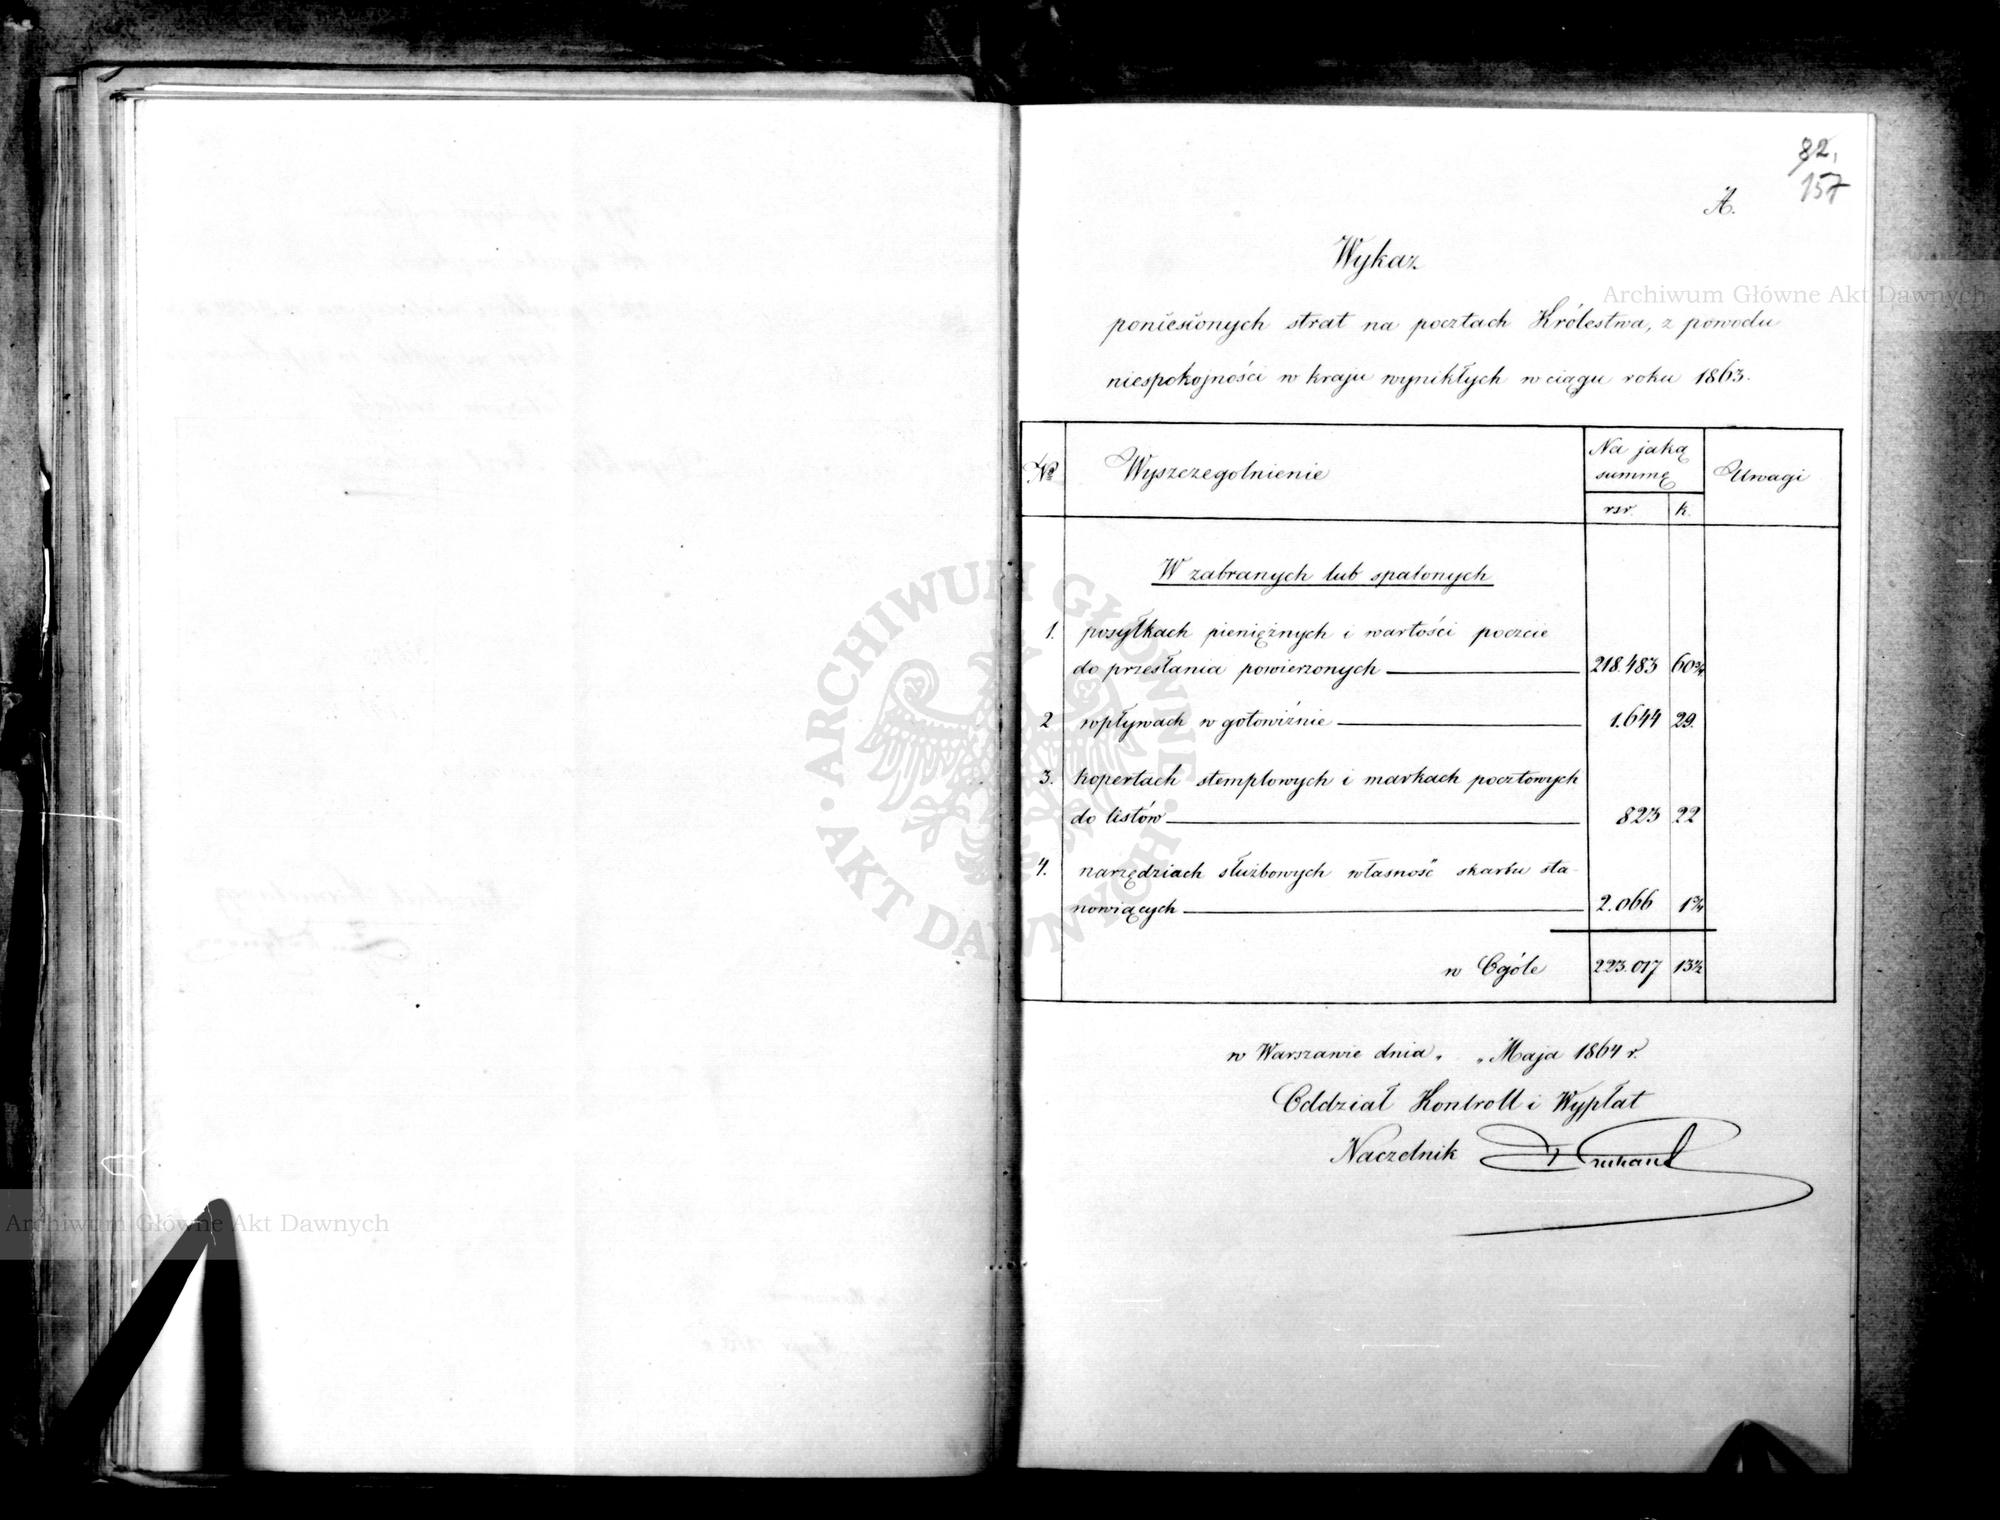 82.
157
A.
Wykaz
poniesionych strat na pocztach Królestwa, z powodu
niespokojności w kraju wynikłych w ciągu roku 1863.
№ Wyszczegolnienie Na jaką summę Uwagi
rsr. k.
W zabranych lub spalonych
1. posyłkach pieniężnych i wartości poczcie
do przesłania powierzonych 218.483 60¾
2 wpływach w gotowiźnie 1.644 29.
3. kopertach stemplowych i markach pocztowych
do listów 823 22
4. narzędziach służbowych własność skarbu sta-
nowiących 2.066 1¾
w Ogóle 223.017 13½
w Warszawie dnia „ „ Maja 1864 r.
Oddział Kontroll i Wypłat
Naczelnik
Archiwum Główne Akt Dawnych
Archiwum Główne Akt Dawnych
ARCHIWUM GŁÓWNE AKT DAWNYCH